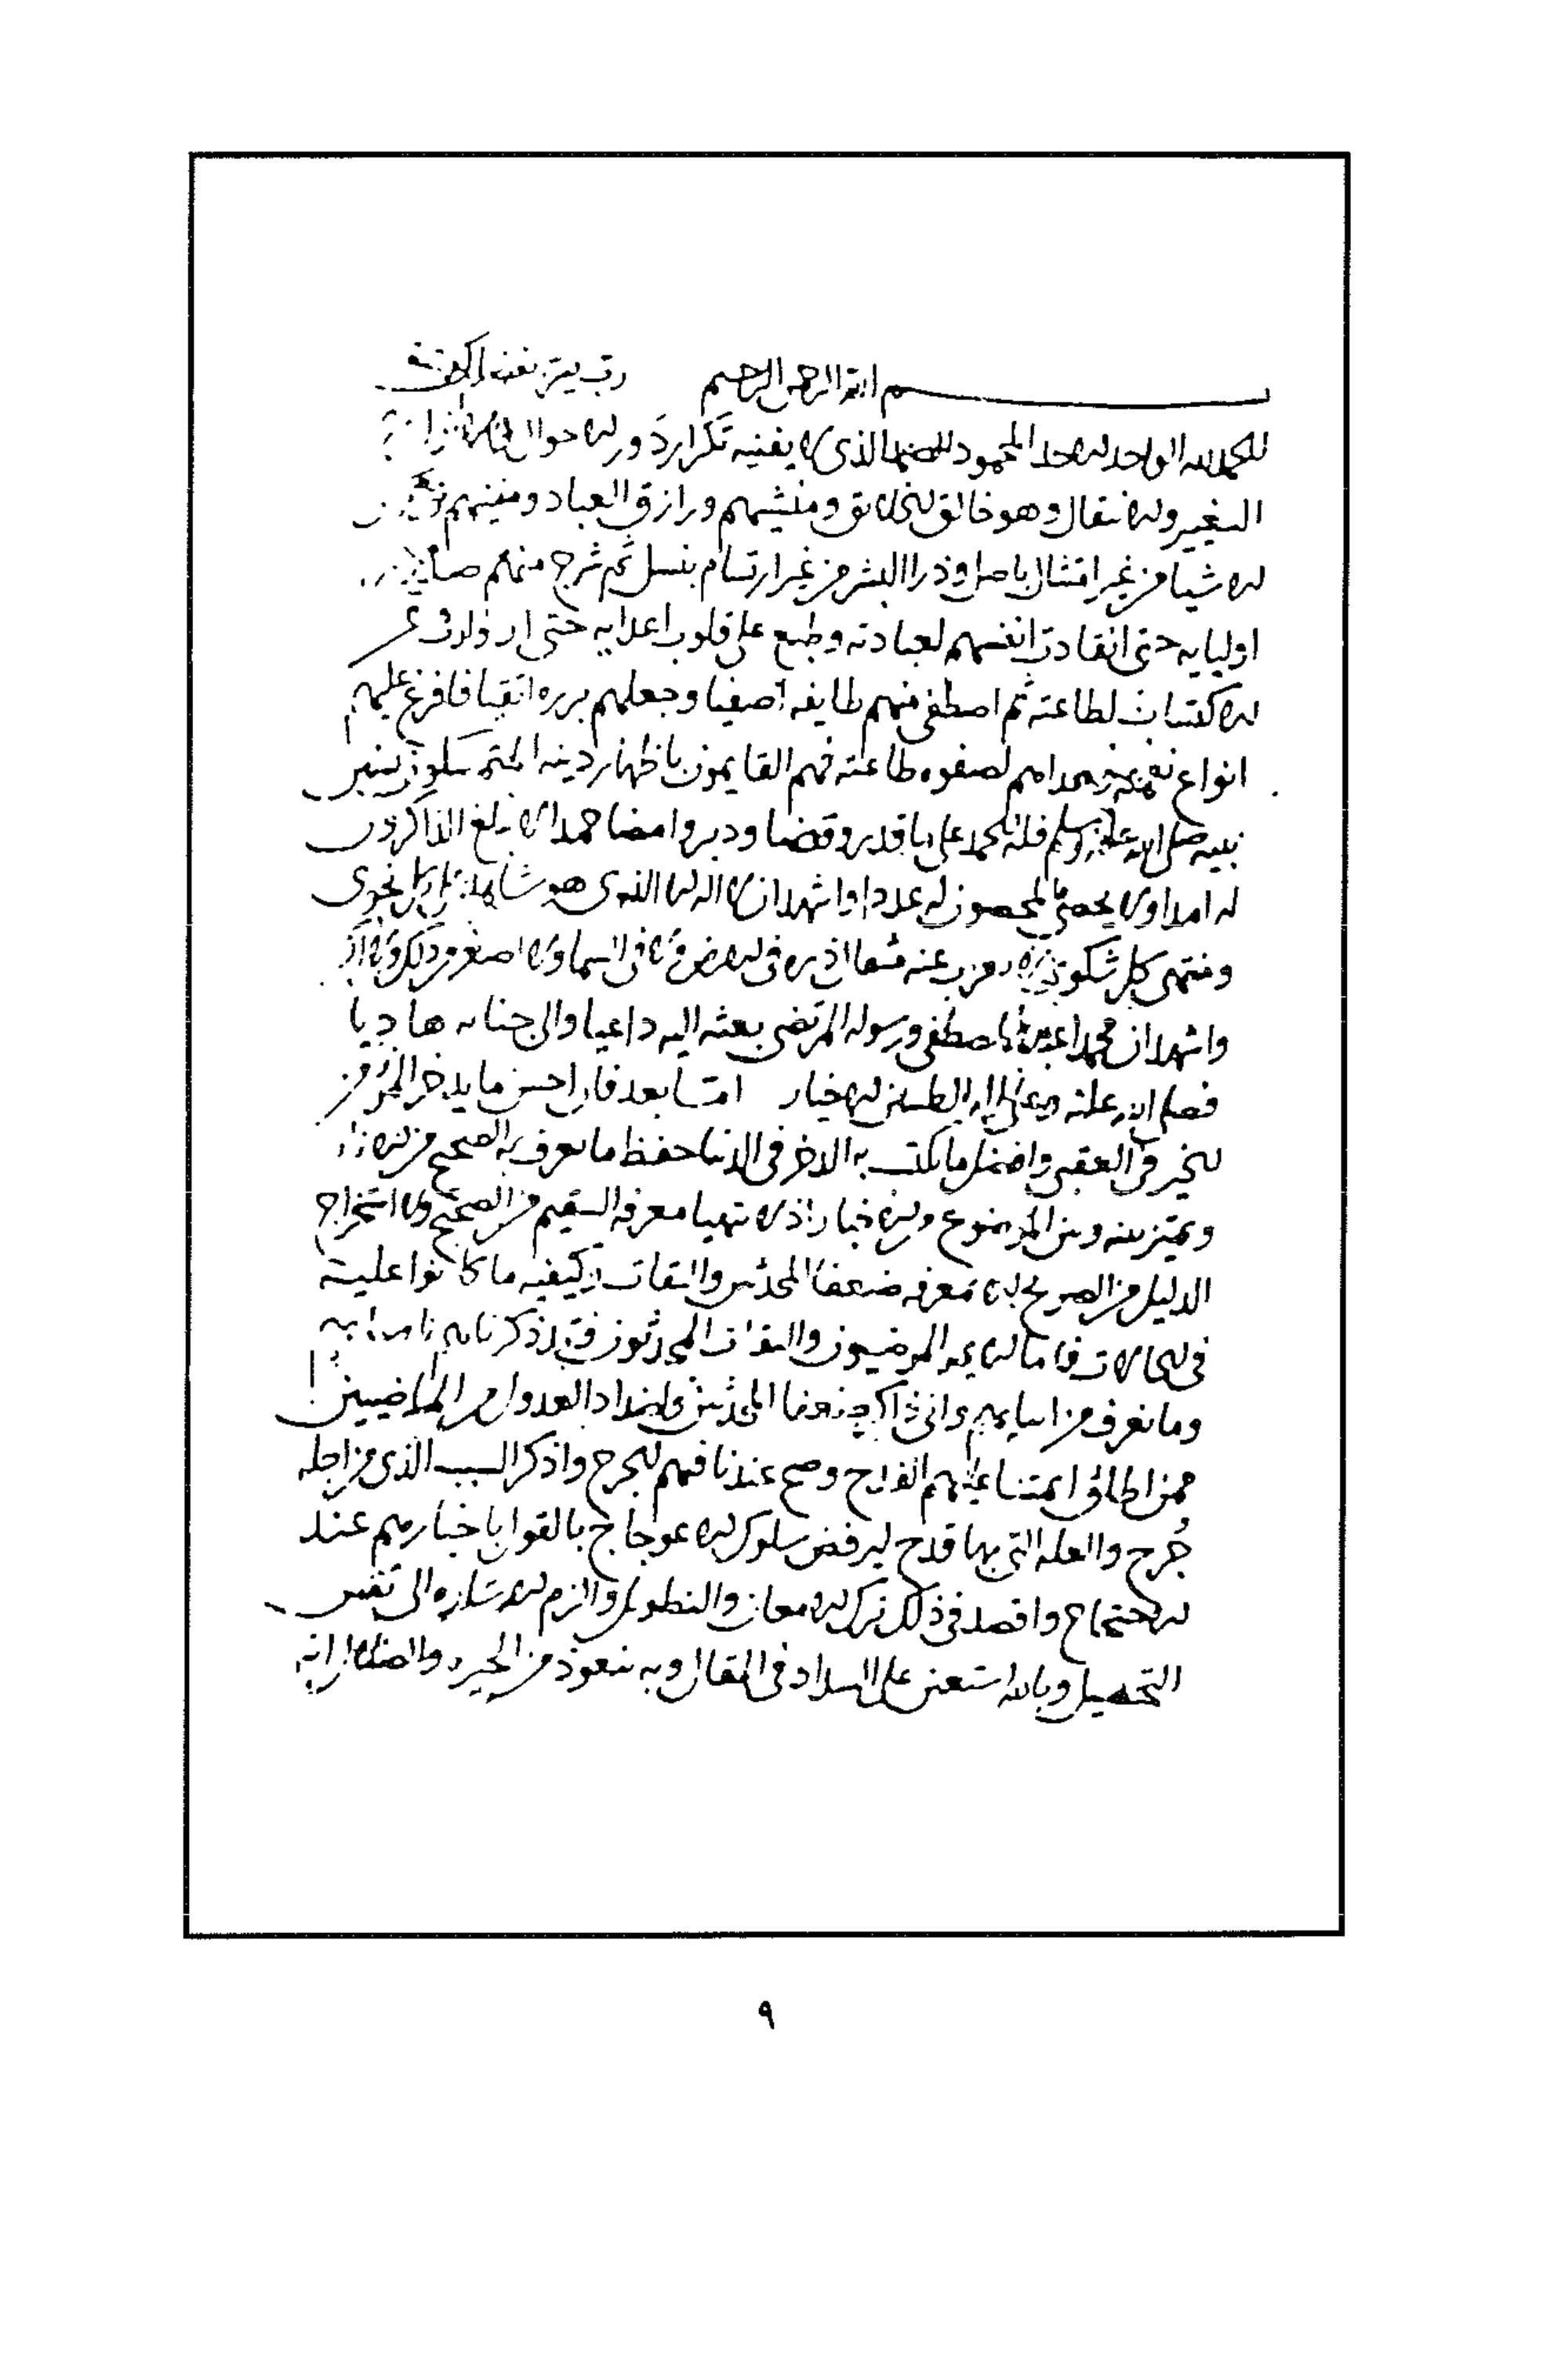 بسم الله الرحمن الرحيم رب يسر
الحمد لله الواحد الاحد المحمود الصمد الذى لا يفنيه تكرار دور الاحوال
التغيير ولا انتقال وهو خالق الخلائق ومنشيهم ورازق العباد ومفنيهم
الاشيا من غير امتثال باصل وذرا البشر من غير ارتسام بنسل ثم شرح منهم
اوليايه حتى انقادت انفسهم لعبادته وطبع على قلوب اعدايه حتى
الاكتساب لطاعته ثم اصطفى منهم طايفه اصفيا وجعلهم برره اتقيا فافرغ عليهم
انواع نعمه وهداهم لصفوه طاعته فهم القايمون باظهار دينه المتمسكون بسنن
نبيه صلى الله عليه وسلم فلله الحمد على ما قدر وقضا ودبر وامضا حمدا لا يبلغ الذاكرون
له امدا ولا يحصى المحصون له عددا واشهد ان لا اله الا الذى هو شاهد كل نجوى
ومنتهى كل شكوى لا يعزب عنه مثقال ذره فى الارض ولا فى السما ولا اصغر من ذلك ولا اكبر
واشهد ان محمدا عبده المصطفى ورسوله المرتضى بعثه اليه داعيا والى جنانه هاديا
فصلى الله عليه وعلى اله الطيبين الاخيار امـا بعد فان احسن ما يدخر المرء من
الخير فى العقبى وافضل ما يكتسب به الذخر فى الدنيا حفظ ما يعرف به الصحيح من الاثار
ويميز بينه وبين الموضوع من الاخبار اذ لا يتهيا معرفه السقيم من الصحيح ولا استخراج
الدليل من الصريح الا بمعرفه ضعفا المحدثين والثقات وكيفيه ما كانوا عليه
فى الحالات فاما الايمه المرضيون والثقات المحدثون فقد ذكرناهم
وما نعرف من انبايهم وانى ذاكر ضعفا المحدثين واضداد العدول من الماضيين
ممن اطلق ايمتنا عليهم القدح وصح عندنا فيهم الجرح واذكر السبب الذى من اجله
جُرح والعله التى بها قدح ليرفض سلوك الاعوجاج بالقول باخبارهم عند
الاحتجاج واقصد فى ذلك ترك الامعان والتطويل والزم الاشاره الى نفس
التحصيل وبالله استعين على السداد فى المقال وبه نتعوذ من الحيره والضلال انه
٩